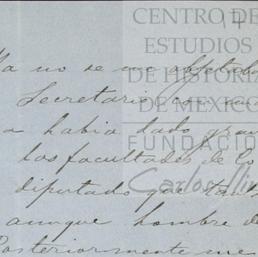 CENTRO DE
ESTUDIOS
DE HISTORIA
DE MEXICO
FUNDACIÓN
Carlos
Ya no se me
Secretario con
a habia dado gran
las facultades de Co
diputado que tan
aunque hombre de
Posteriormente me